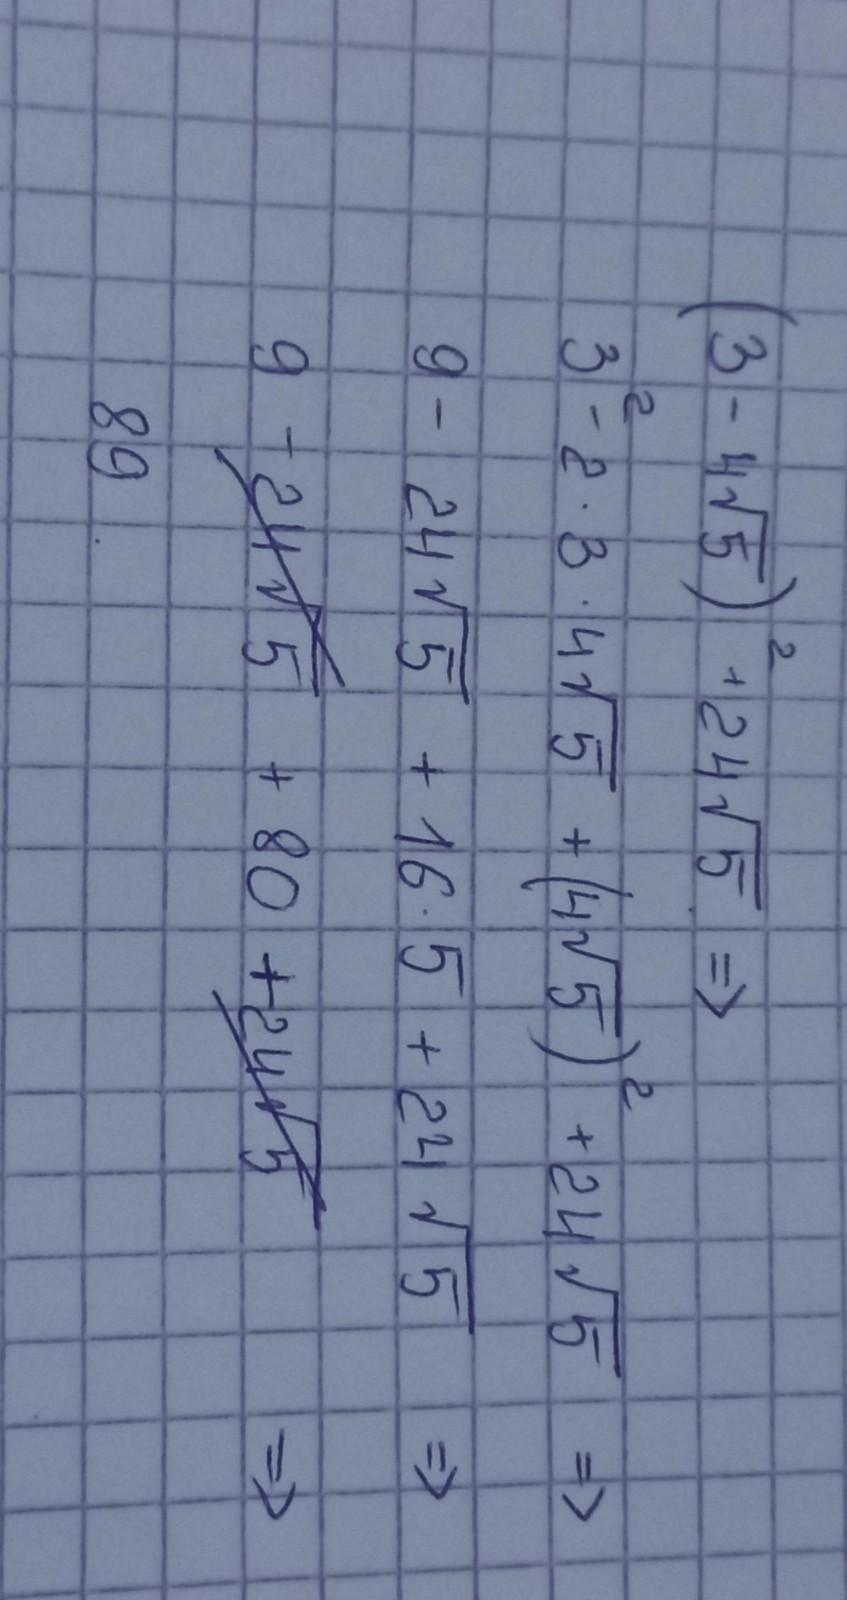 (3 - 4√5)² + 24√5 =>
3² - 2 · 3 · 4√5 + (4√5)² + 24√5 =>
9 - 24√5 + 16 · 5 + 24√5 =>
9 - 24√5 + 80 + 24√5 =>
89.